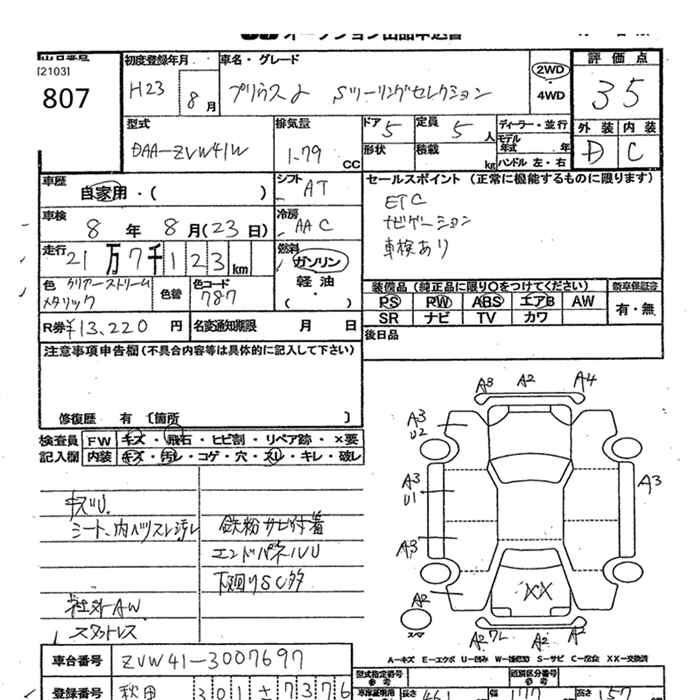 オークション出品申込書
[2103]
807
初度登録年月
車名・グレード
評 価 点
H23 8月
プリウスα Sツーリングセレクション
2WD
・4WD
35
型式
排気量
ドア 5
定員 5 人
ディーラー・並行
外 装 内 装
DAA-ZVW41W
1.79 CC
形状
積載 kg
モデル年式 年
ハンドル 左・右
D C
車歴
自家用・( )
シフト AT
セールスポイント (正常に機能するものに限ります)
車検
8 年 8 月(23 日)
冷房 AAC
ETC
ナビゲーション
車検あり
走行
21万7千123km
燃料
ガソリン
軽 油
( ・ )
色 クリアーストリームメタリック
色替
色コード
787
装備品 (純正品に限り○をつけてください)
新車保証書
PS RW ABS エアB AW
有・無
SR ナビ TV カワ
R券 ¥13,220 円
名変通知期限 月 日
後日品
注意事項申告欄(不具合内容等は具体的に記入して下さい)
修復歴 有 〔箇所 〕
検査員
記入欄
FW キズ・飛石・ヒビ割・リペア跡・×要
内装 キズ・汚レ・コゲ・穴・スレ・キレ・破レ
キズU
シート、内ハリスレ汚レ
鉄粉サビ付着
エンドパネルU
下廻りSC多
社外AW
スタットレス
A3 A2 A4
A3
U2
A3
U1
A3
A3
A2
XX
スペア
A2 フレ A2 A2
A-キズ E-エクボ U-凹み W-補修跡 S-サビ C-腐食 XX-交換済
車台番号 ZVW41-3007697
型式指定番号
類別区分番号
登録番号 秋田 301 す 7376
長さ 461
幅 177
高さ 157